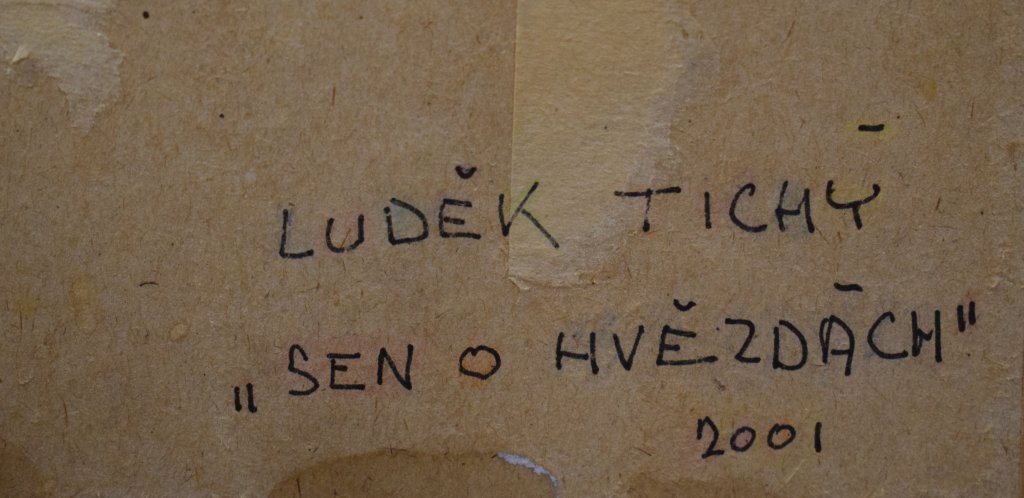 LUDĚK TICHÝ
„SEN O HVĚZDÁCH"
2001